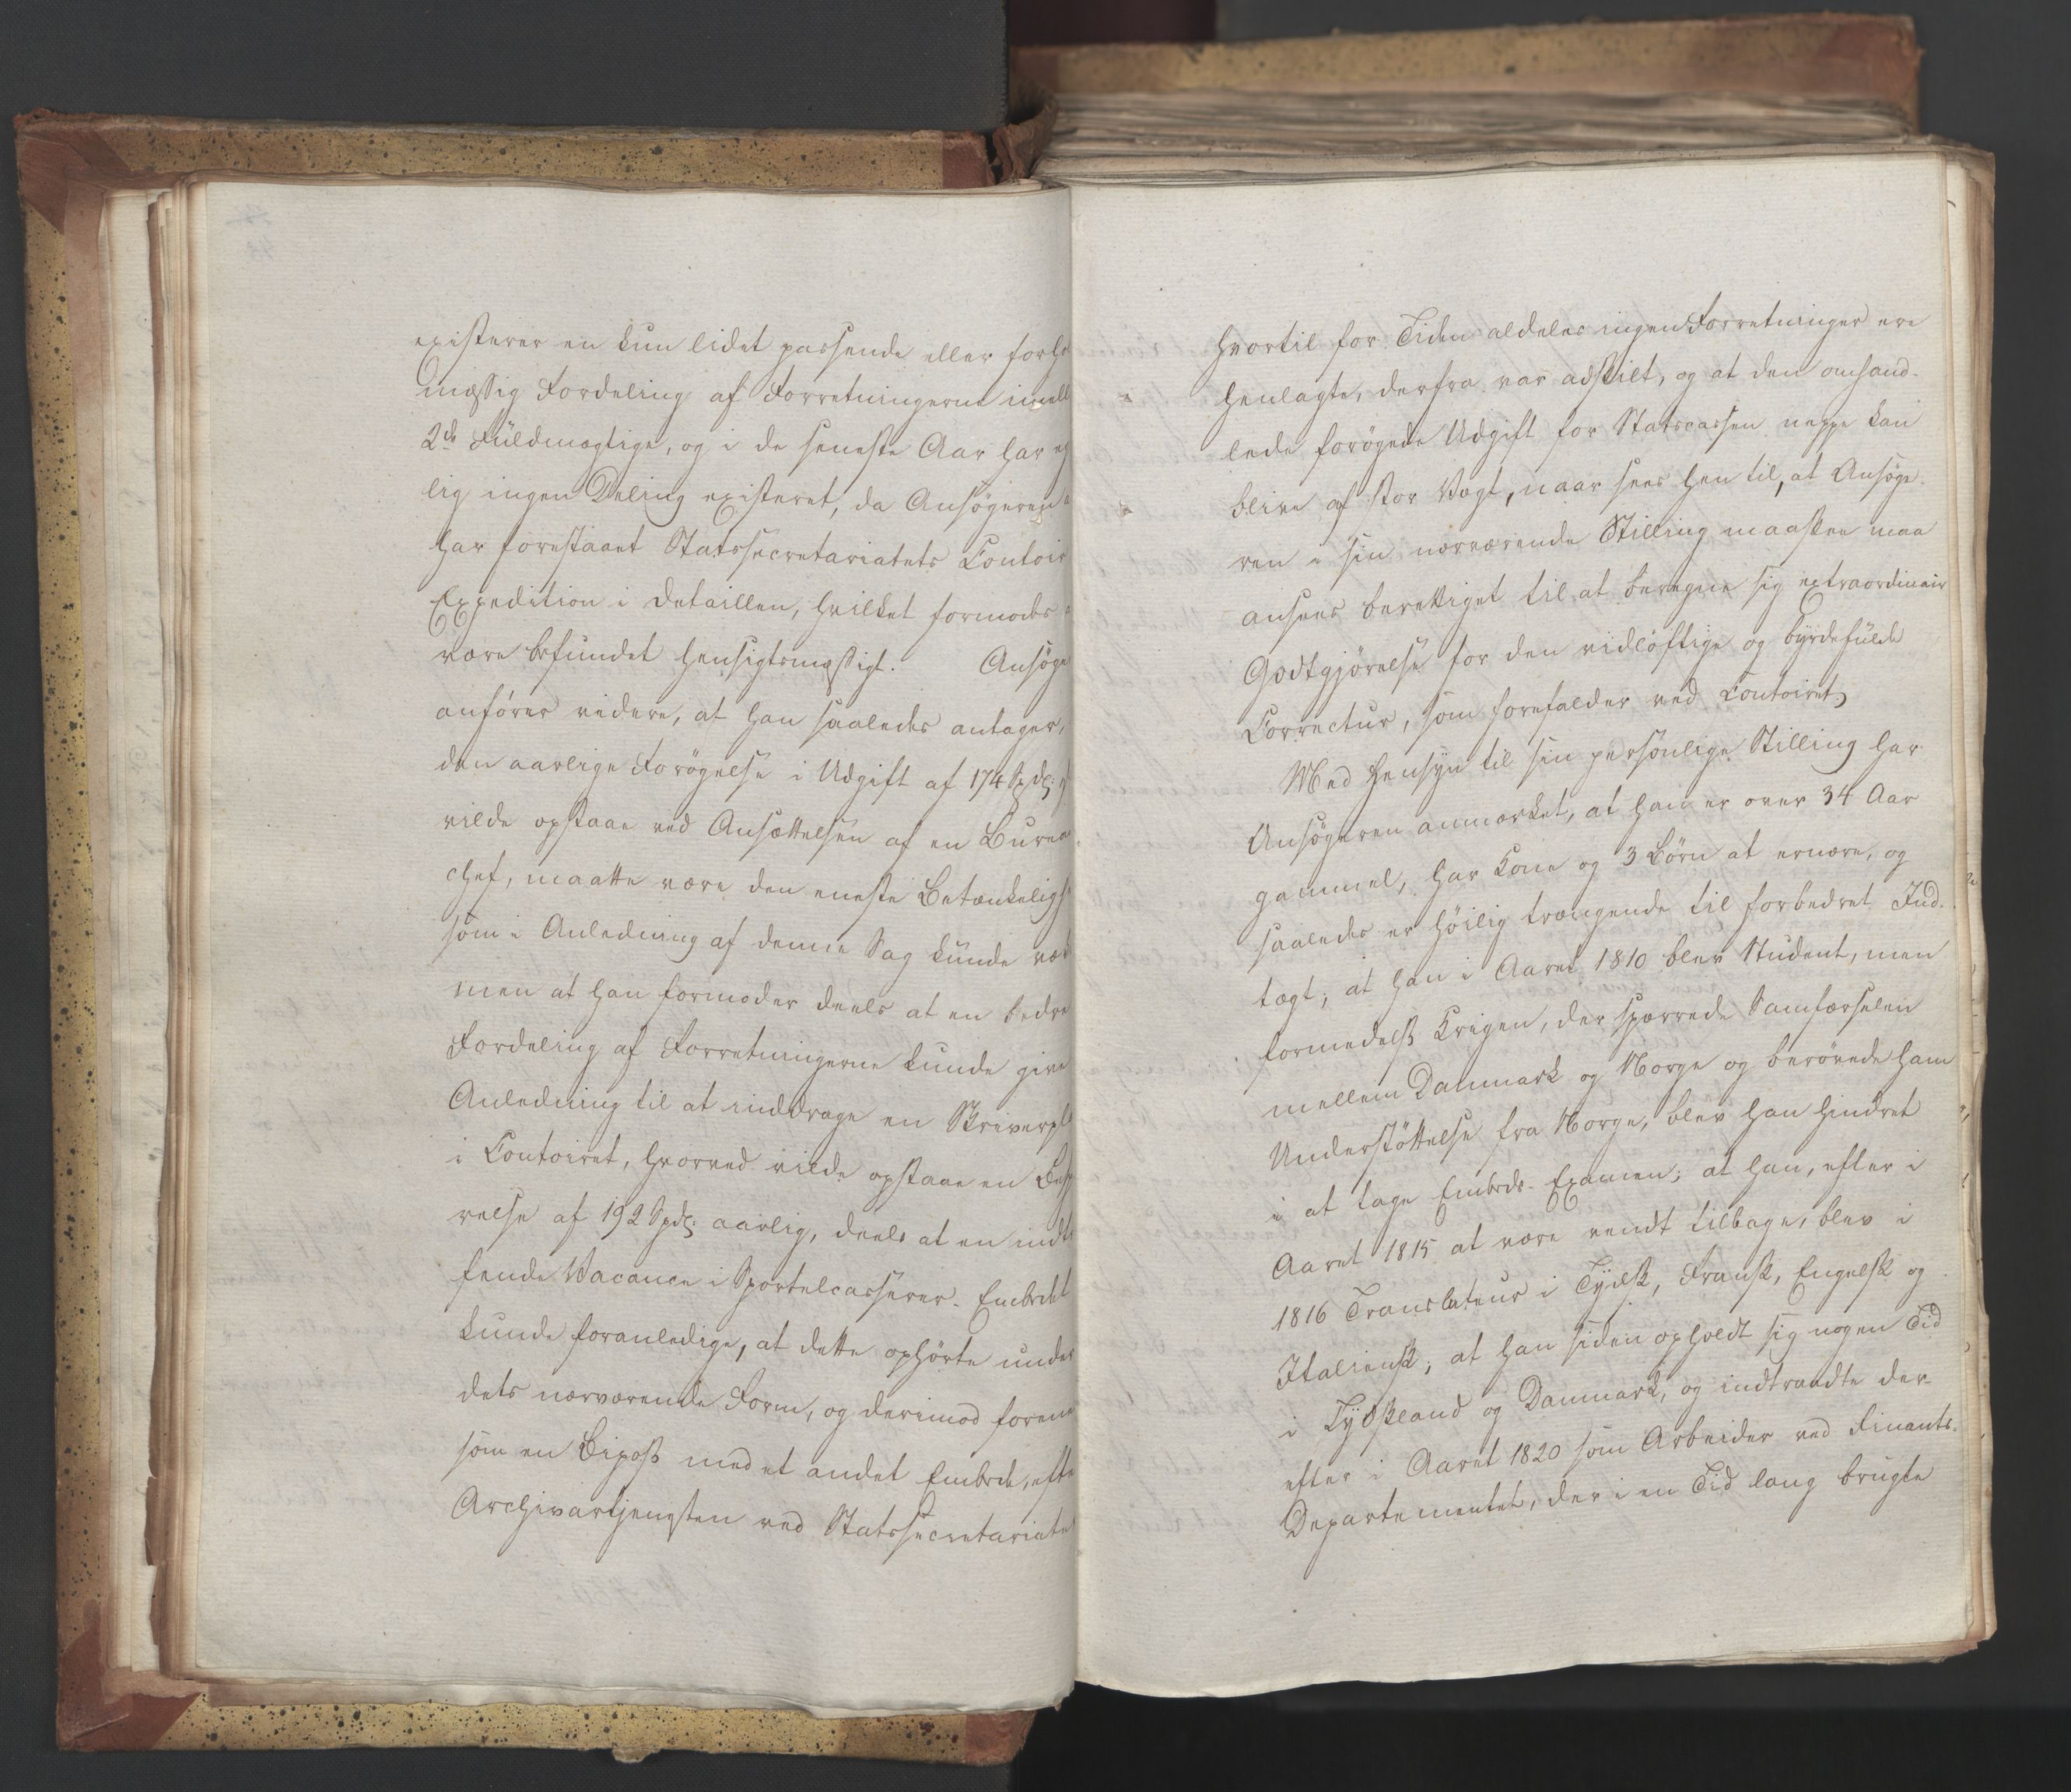 existerer en kun lidet passende eller forho
mæssig Fordeling af Forretningerne imell
2de Füldmægtige, og i de seneste Aar har eg
lig ingen Deling existeret, da Ansögeren
har forestaaet Statssecretariatets Contoir
Expedition i Detaillen, hvilket formodes
være befundet hensigtsmæssigt. Ansöge
anförer videre, at han saaledes antager,
den aarlige Forögelse i Udgift af 174 Spdlr;
vilde opstaae ved Ansættelsen af en Burea
chef, maatte være den eneste Betænkeligh
som i Anledning af denne Sag kunde væk
men at han formoder deels at en bedre
Fordeling af Forretningerne kunde give
Anledning til at inddrage en Skriverpl
i Contoiret, hvorved vilde opstaae en Besp
relse af 192 Spdlr: aarlig, deels at en indtr
fende Vacance i Sportelcasserer-Embedet
kunde foranledige, at dette ophörte under
dets nærværende Form, og derimod forene
som en Bipost med et andet Embede, efte
Archivartjenesten ved Statssecretariatet
hvortil for Tiden aldeles ingen Forretninger ere
henlagte, derfra var adskilt, og at den omhand-
lede forögede Udgift for Statscassen neppe kan
blive af stor Vægt, naar sees hen til, at Ansöge-
ren i sin nærværende Stilling maaskee maa
ansees berettiget til at beregne sig extraordinair
Godtgjörelse for den vidlöftige og byrdefulde
Correctur, som forefalder ved Contoiret,
Med Hensyn til sin personlige Stilling har
Ansögeren anmærket, at han er over 34 Aar
gammel, har Kone og 3 Börn at ernære, og
saaledes er höilig trængende til forbedret Ind-
tægt; at han i Aaret 1810 blev Student, men
formedelst Krigen, der spærrede Samfærselen
mellem Danmark og Norge og berövede ham
Understöttelse fra Norge, blev han hindret
i at tage Embeds-Examen; at han, efter i
Aaret 1815 at være vendt tilbage, blev i
1816 Translateur i Tydsk, Fransk, Engelsk og
Italiensk; at han siden opholdt sig nogen Tid
i Tydskland og Danmark, og indtraadte der-
efter i Aaret 1820 som Arbeider ved Finants-
Departementet, der i en Tid lang brugte